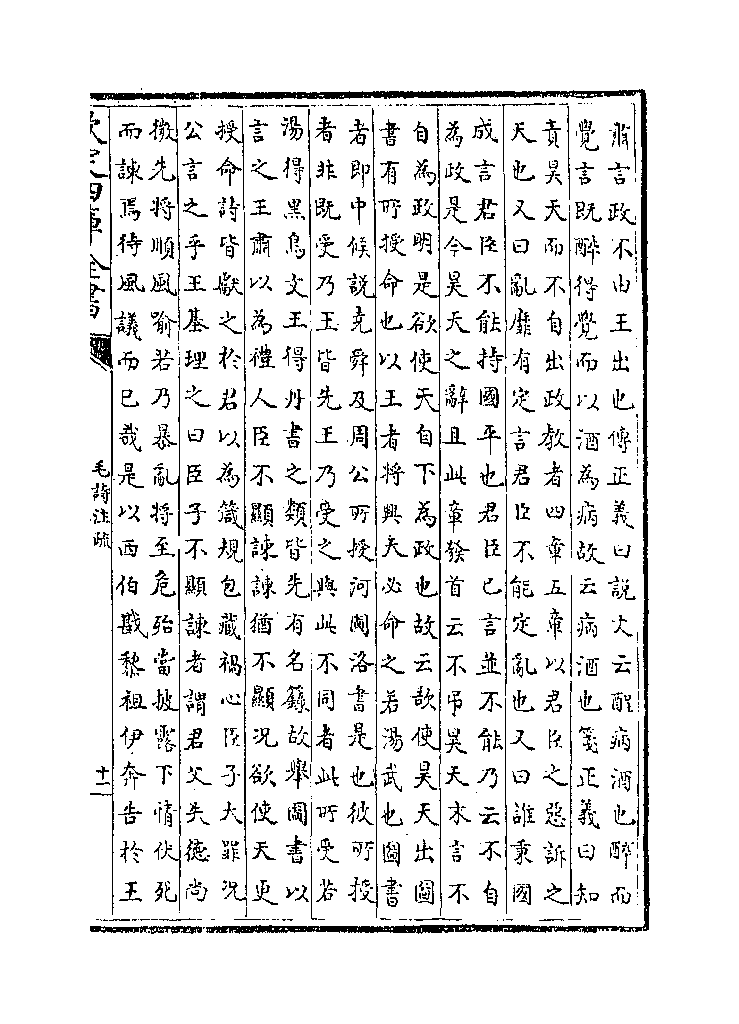 肅言政不由王出也傳正義曰說文云酲病酒也醉而
覺言既醉得覺而以酒為病故云病酒也箋正義曰知
責昊天而不自出政教者四章五章以君臣之惡訴之
天也又曰亂靡有定言君臣不能定亂也又曰誰秉國
成言君臣不能持國平也君臣已言並不能乃云不自
為政是令昊天之辭且此章發首云不弔昊天末言不
自為政明是欲使天自下為政也故云欲使昊天出圖
書有所授命也以王者將興天必命之若湯武也圖書
者即中候說堯舜及周公所授河圖洛書是也彼所授
者非既受乃王皆先王乃受之與此不同者此所受若
湯得黑鳥文王得丹書之類皆先有名籙故舉圖書以
言之王肅以為禮人臣不顯諫諫猶不顯況欲使天更
授命詩皆獻之於君以為箴規包藏禍心臣子大罪況
公言之乎王基理之曰臣子不顯諫者謂君父失德尚
微先將順風喻若乃暴亂將至危殆當披露下情伏死
而諫焉待風議而已哉是以西伯戡黎祖伊奔告於王
欽定四庫全書
毛詩注疏
十二